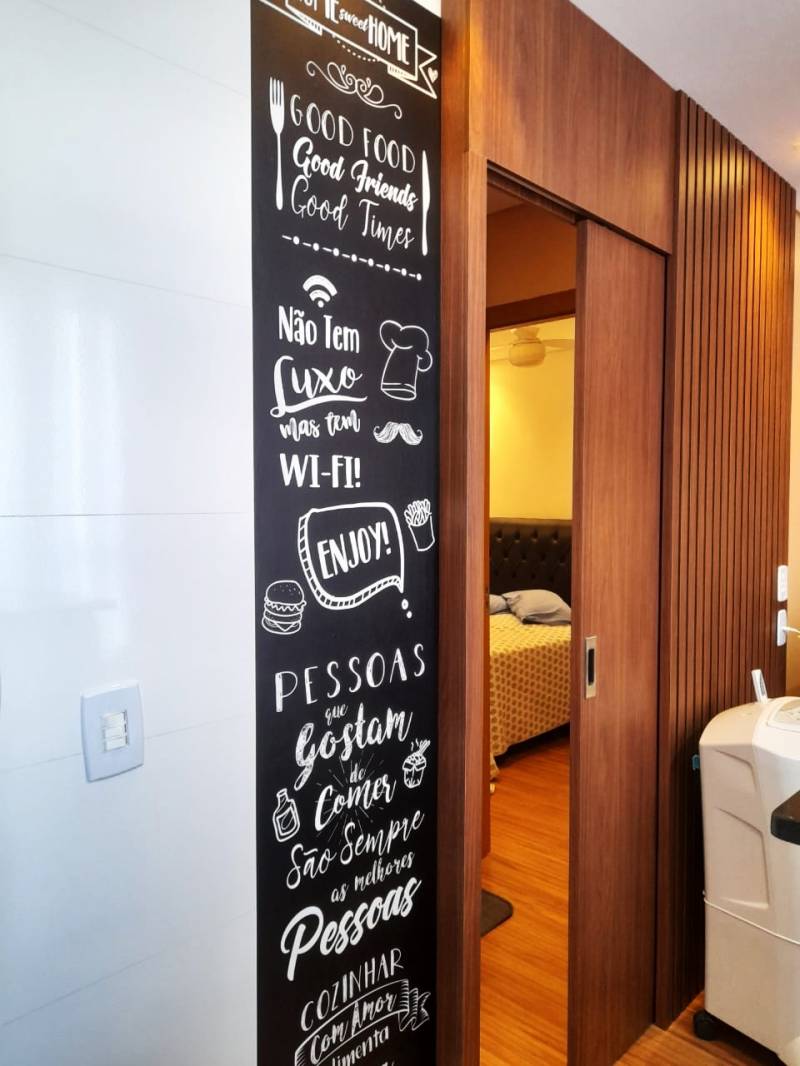 sweet HOME
GOOD FOOD
Good Friends
Good Times
Não Tem
Luxo
mas tem
WI-FI!
ENJOY!
PESSOAS
que
Gostam
de
Comer
São Sempre
as melhores
Pessoas
COZINHAR
Com Amor